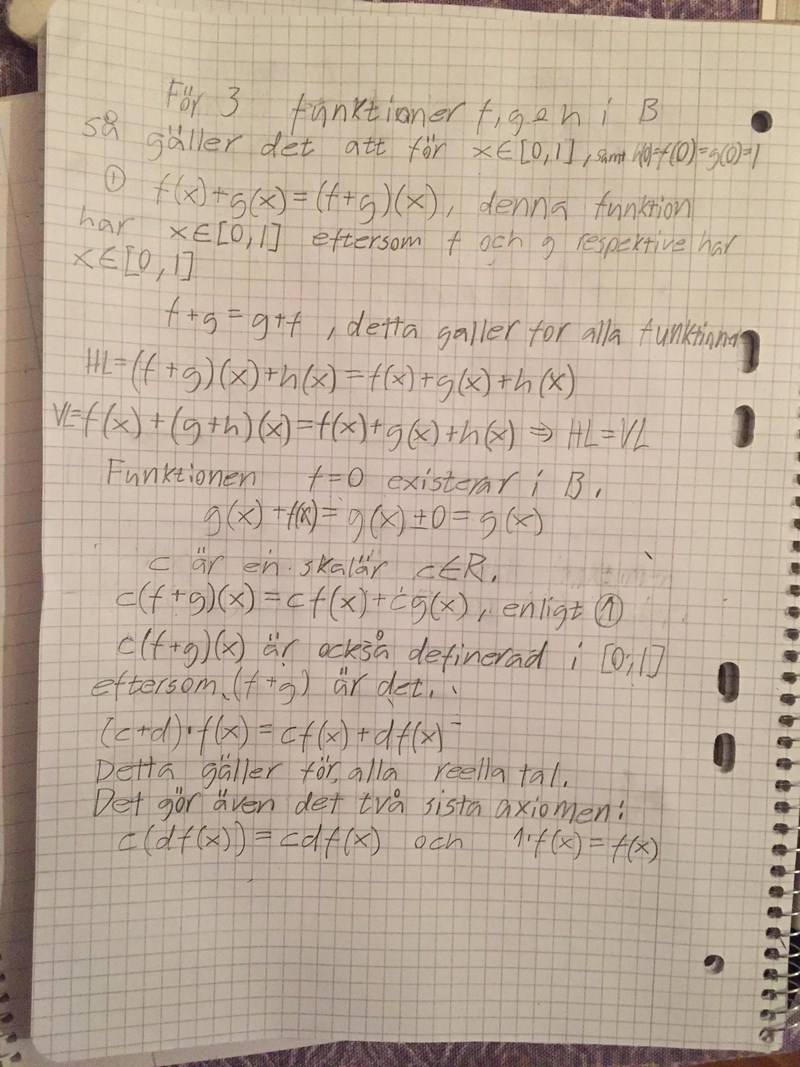 För 3 funktioner f, g e h i B
så gäller det att för x∈[0,1], samt h(0)=f(0)=g(0)=1
① f(x)+g(x)=(f+g)(x), denna funktion
har x∈[0,1] eftersom f och g respektive har
x∈[0,1]
f+g=g+f, detta galler for alla funktioner
HL=(f+g)(x)+h(x)=f(x)+g(x)+h(x)
VL=f(x)+(g+h)(x)=f(x)+g(x)+h(x) ⇒ HL=VL
Funktionen f=0 existerar i B.
g(x)+f(x)=g(x)±0=g(x)
c är en skalär c∈R.
c(f+g)(x)=cf(x)+cg(x), enligt ①
c(f+g)(x) är också definerad i [0,1]
eftersom (f+g) är det.
(c+d)·f(x)=cf(x)+df(x)
Detta gäller för alla reella tal.
Det gör även det två sista axiomen:
c(df(x))=cdf(x) och 1·f(x)=f(x)